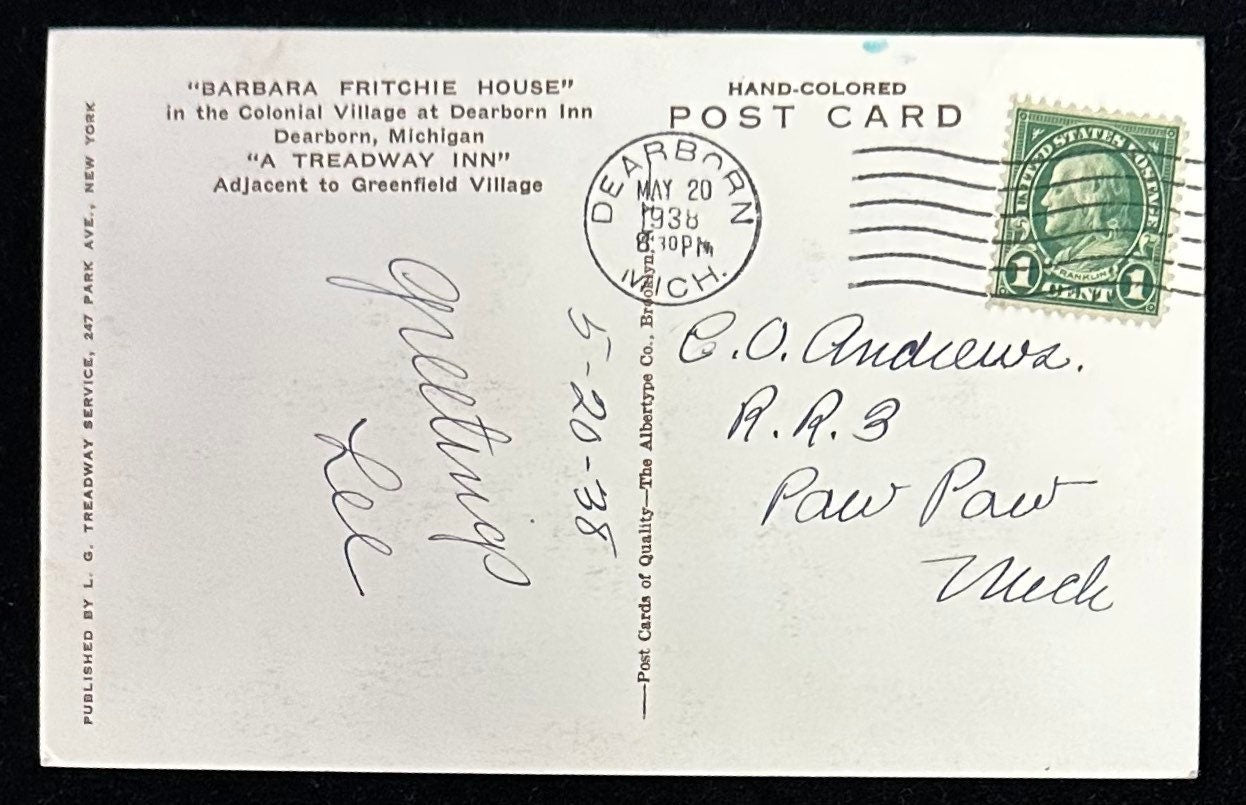 "BARBARA FRITCHIE HOUSE"
in the Colonial Village at Dearborn Inn
Dearborn, Michigan
"A TREADWAY INN"
Adjacent to Greenfield Village
PUBLISHED BY L. G. TREADWAY SERVICE, 247 PARK AVE., NEW YORK
5-20-38
Greetings
Lee
—Post Cards of Quality—The Albertype Co., Brooklyn,
HAND-COLORED
POST CARD
DEARBORN
MAY 20
1938
8:30 PM
MICH.
UNITED STATES POSTAGE
FRANKLIN
1 CENT 1
C.O. Andrews.
R.R.3
Paw Paw
Mich